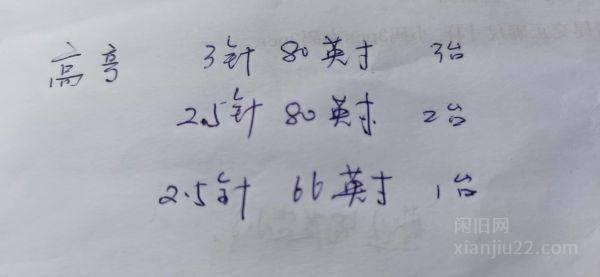 高亨 3针 80英寸 3台
2.5针 80英寸 2台
2.5针 66英寸 1台
闲旧网
xianjiu22.com